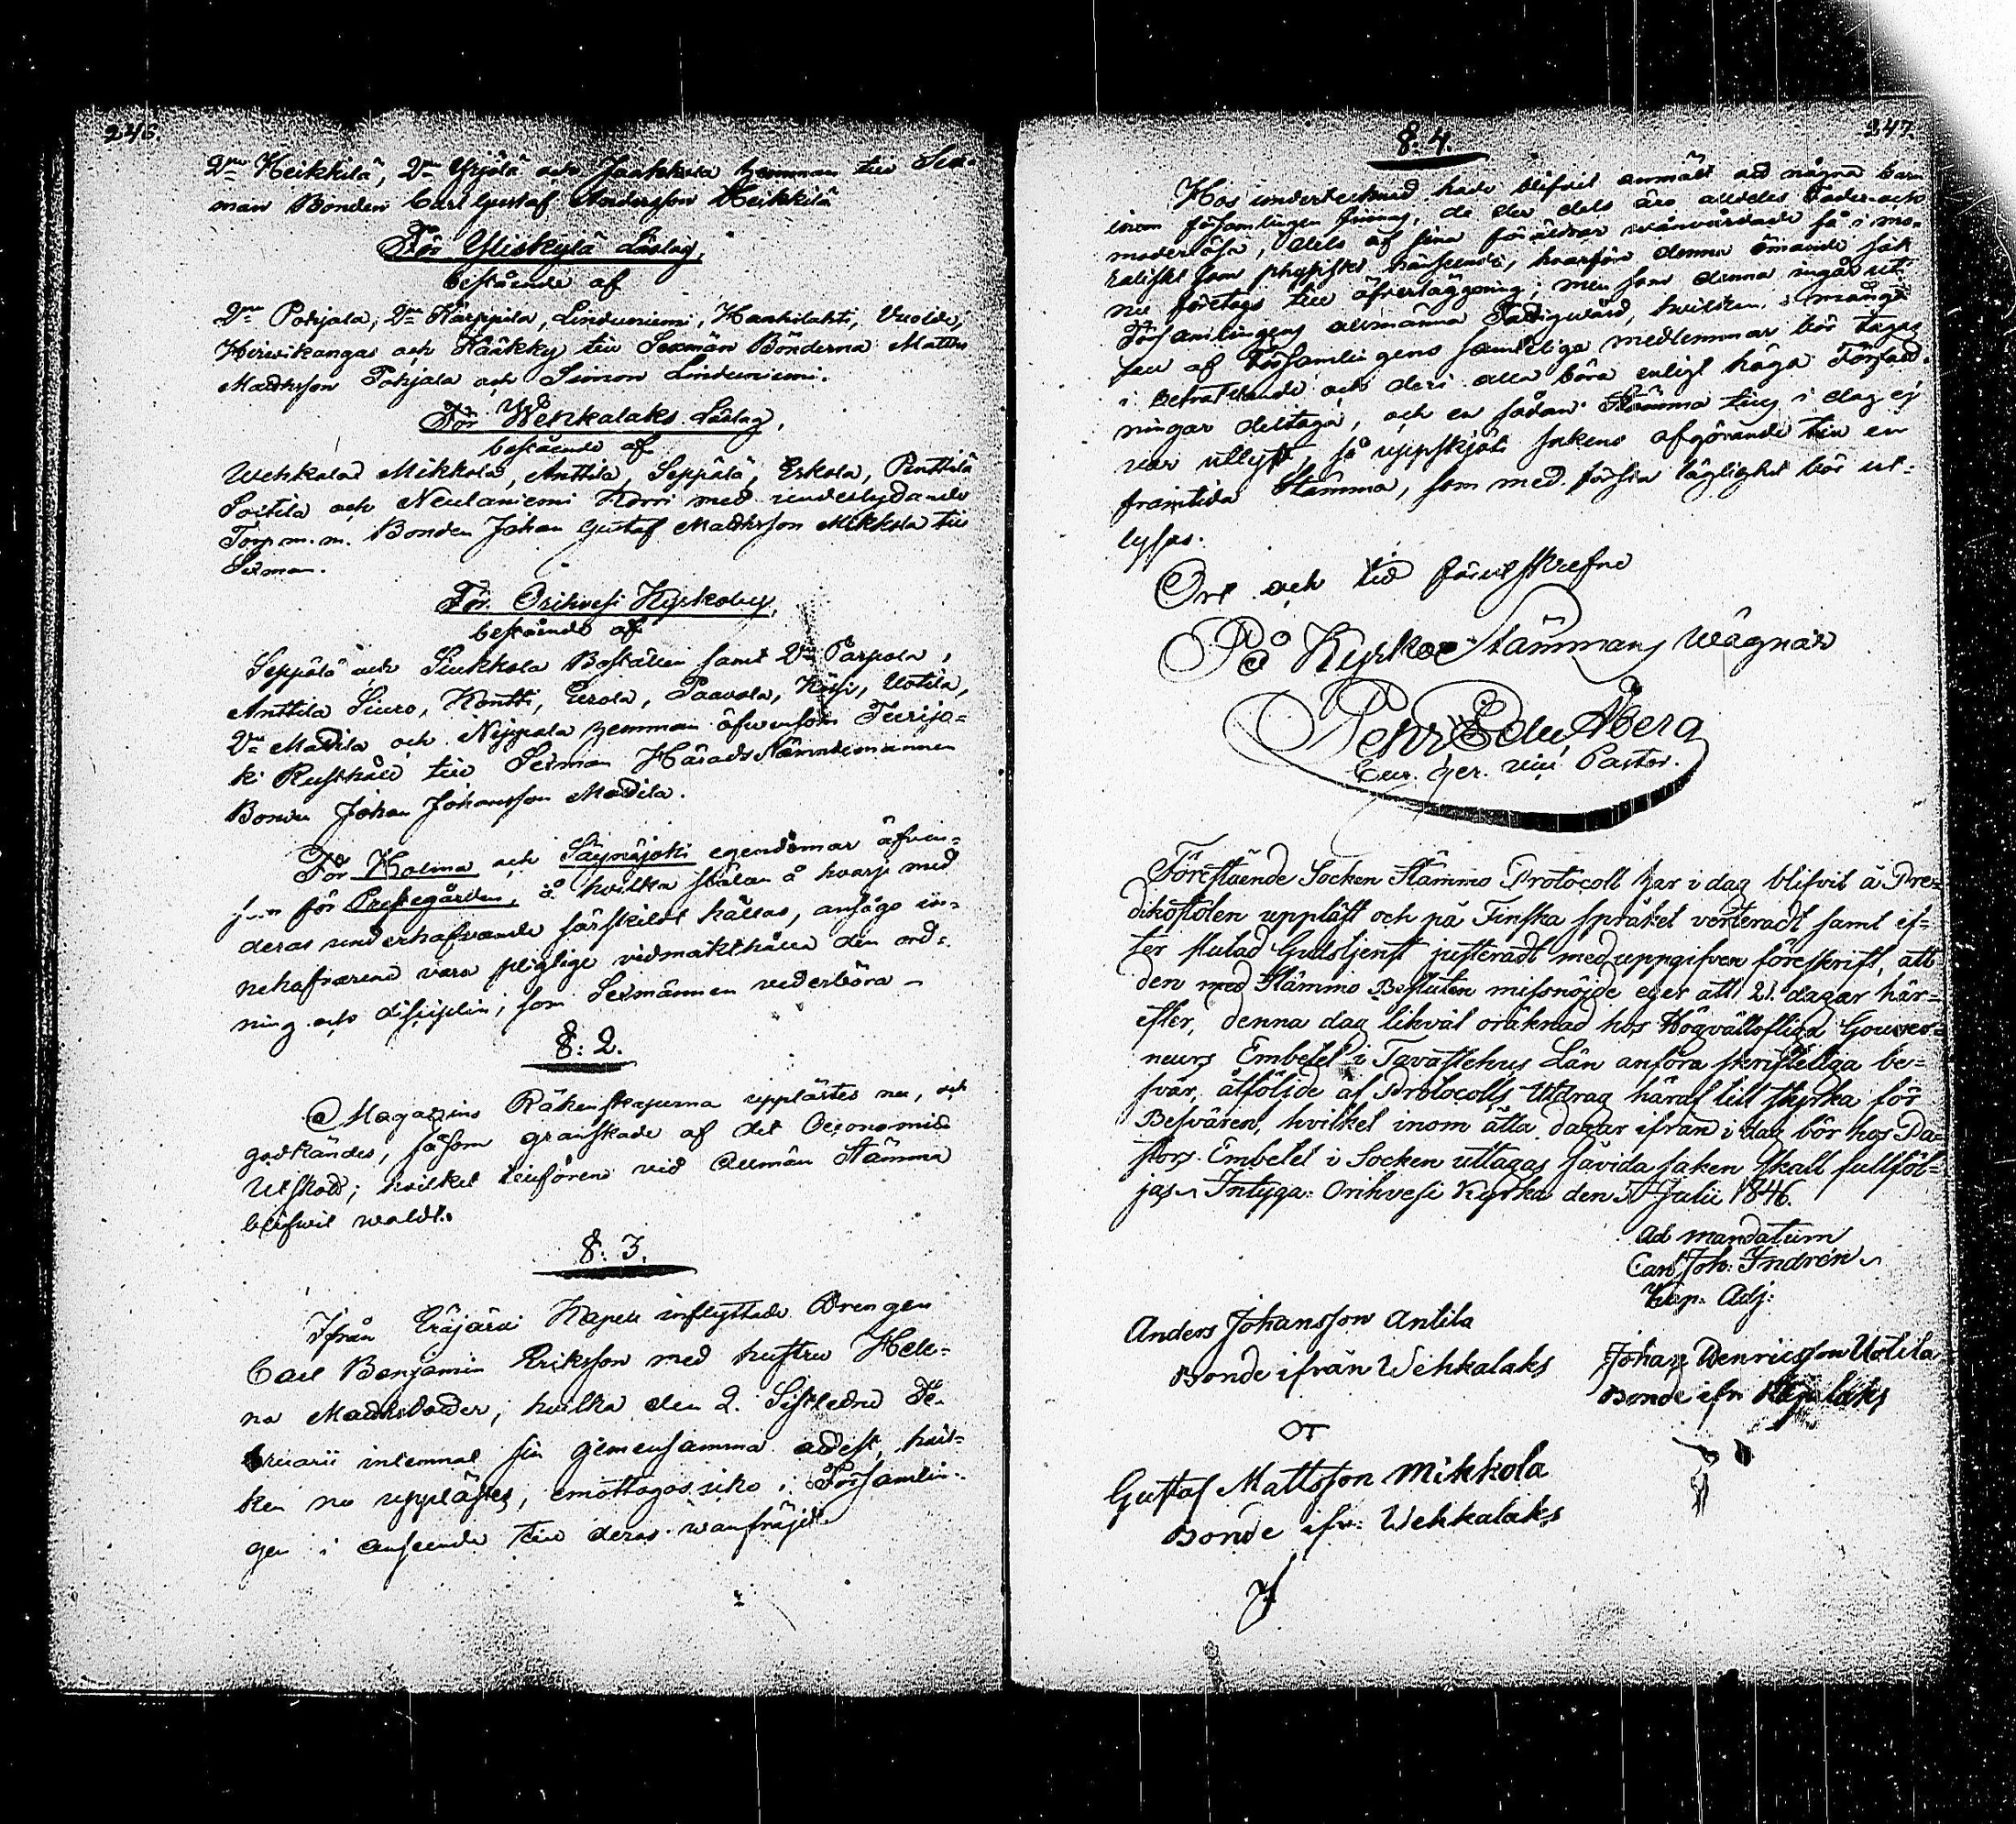 246.
2ne Heikkilä, 2ne Yrjölä och Jaakkola hemman till Sex-
man Bonden Carl Gustaf Andersson Heikkilä
För Yliskylä Läslag,
bestående af
2ne Pohjala, 2ne Kärppilä, Linduniemi, Haukilahti, Vuolde,
Hirvikangas och Kääkky till Sexmän Bönderna Matths
Mattsson Pohjala och Simon Linduniemi.
För Wehkalaks Läslag,
bestående af
Wehkalax Mikkola, Anttila, Seppälä, Eskola, Penttilä
Soitila och Neulaniemi Korri med underlydande
Torp m.m. Bonden Johan Gustaf Mattsson Mikkola till
Sexman.
För Orihvesi Kyrkoby,
bestående af
Seppälä och Siukkola Boställen samt 2ne Parpola,
Anttila Siuro, Kontti, Eerola, Paavola, Uotila,
2ne Mattila och Nippala hemman äfvensom Teerijo-
ki Rusthåll till Sexman Härads Nämndemannen
Bonden Johan Johansson Mattila.
För Holma och Säynäjoki egendomar äfven-
som för Prestegården, å hvilka skolan å hvarje med
deras underhafvande särskildt hålles, ansågs in-
nehafvarene vara pligtige vidmakthålla den ord-
ning och disciplin, som Sexmännen vederböra
§: 2.
Magazins Räkenskaperna upplästes nu, och
godkändes, såsom granskade af det Oeconomie
Utskott; hvilket tillförene vid Allmän Stämma
blifvit valdt.
§: 3.
Ifrån Eräjärvi Kapell inflyttade Drengen
Carl Benjamin Eriksson med hustru Hele-
na Mattsdotter, hvilka den 2. Sistledne Fe-
bruarii inlemnat sin gemensamma attest, hvil-
ken nu upplästes, emottagos icke i Församlin-
gen i anseende till deras wanfräjd.
347.
§: 4.
Hos undertecknad hade blifvit anmäldt att några barn
inom församlingen finnas, de der dels äro alldeles Fader- och
moderlösa, dels af sina föräldrar wanvårdade så i mo-
raliskt som physiskt hänseende, hvarföre denna ömande sak
nu företogs till öfverläggning; men som denna ingår uti
Församlingens allmänna Fattigvård, hvilken i många
fall af Församlingens samteliga medlemmar bör tagas
i betraktande och deri alla böra enligt höga Författ-
ningar deltaga, och en sådan Stämma till i dag ej
var utlyst, så uppskjöts sakens afgörande till en
framtida Stämma, som med första läglighet bör ut-
lysas.
Ort och tid förut skrefne
På Kyrkoe Stämmans wägnar
Pehr Edv. Åberg
Pastor.
Föreståénde Socken Stämmo Protocoll har i dag blifvit å Pre-
dikostolen uppläst och på Finska språket verteradt samt ef-
ter slutad Gudstjenst justeradt med uppgifven föreskrift, att
den med Stämmo Besluten missnöjde eger att 21. dagar här-
efter, denna dag likväl oräknad hos Högvällofliga Gouver-
neurs Embetet i Tavastehus Län anföra skrifteliga be-
svär, åtföljde af Protocolls Utdrag häraf till styrka för
Besvären, hvilket inom åtta dagar ifrån i dag bör hos Pa-
stors Embetet i Socken uttagas såvida saken skall fullföl-
jas. Intyga: Orihvesi Kyrka den 5 Julii 1846.
Ad mandatum
Carl Joh: Indrén
Kap. Adj:
Anders Johansson Antila
Bonde ifrån Wehkalaks
Johan Henricsson Uotila
Bonde ifr
Gustaf Mattsson Mikkola
Bonde ifr: Wehkalaks